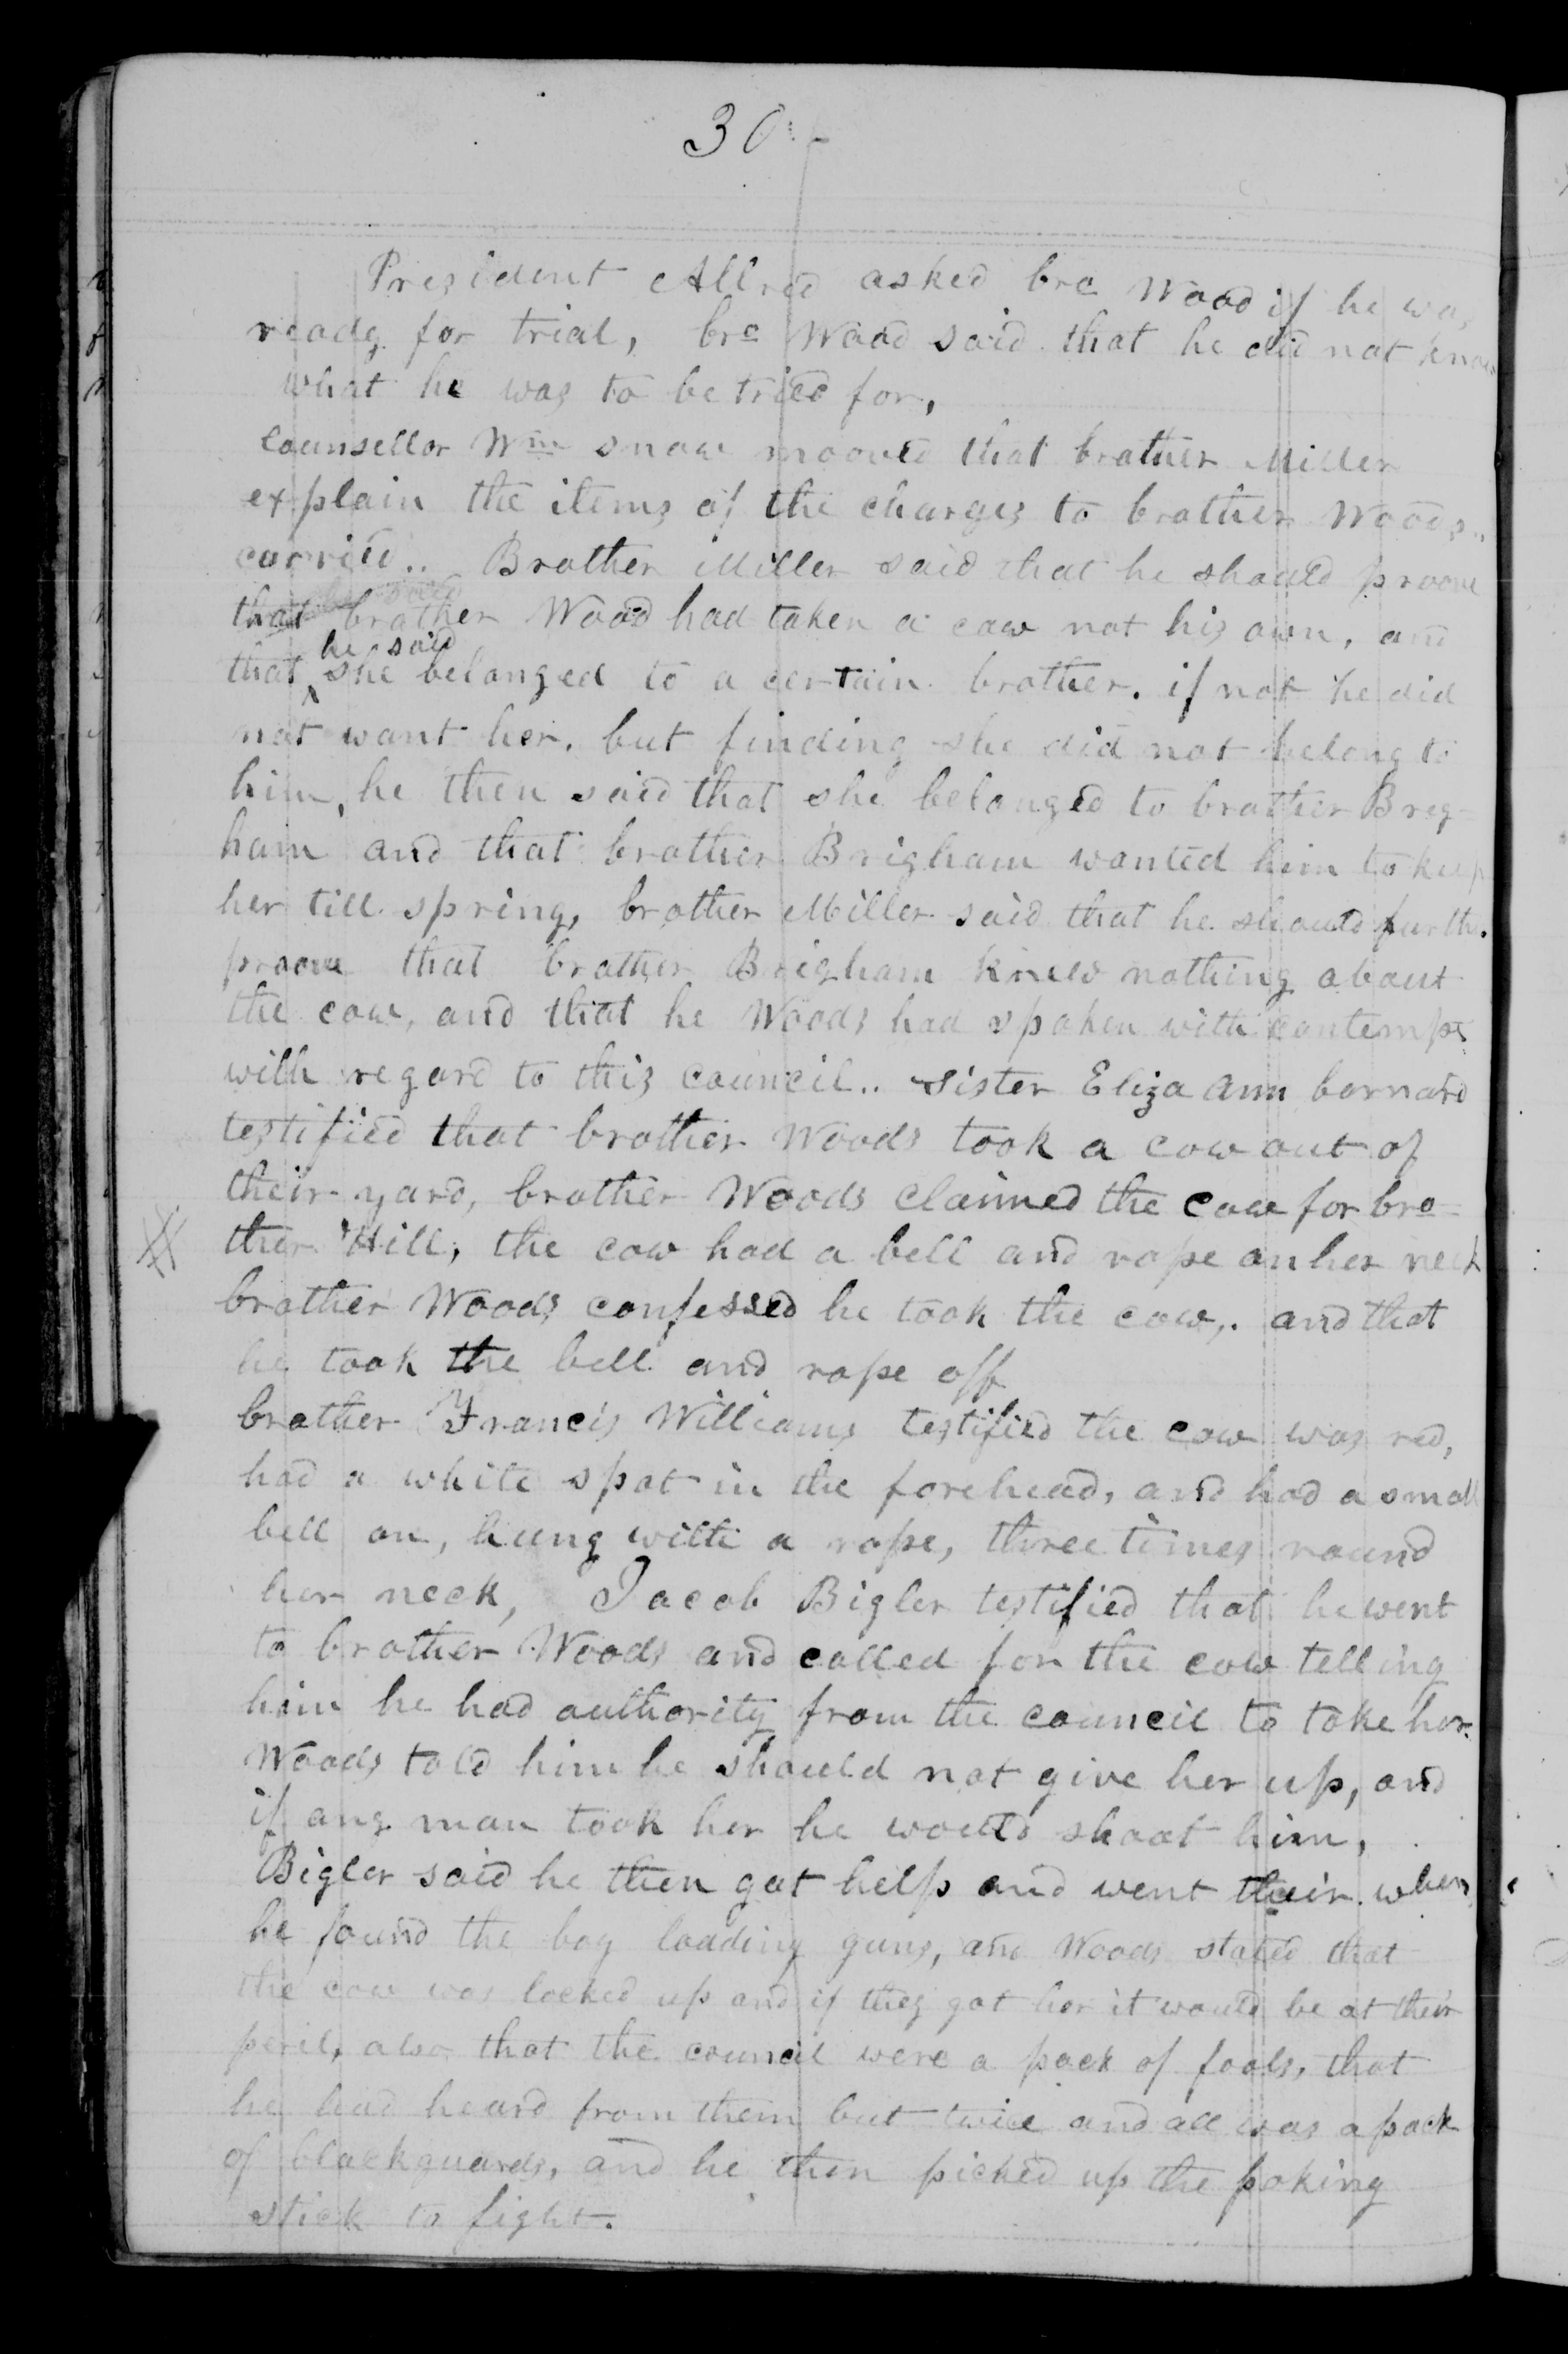 30
President Allred asked bro Wood if he was
ready for trial, bro Wood said that he did not know
what he was to be tried for,
Counsellor Wm snow mooved that brother Miller
explain the items of the charges to brother Woods..
carried.. Brother Miller said that he should proove
that brother Wood had taken a cow not his own, and
that ^he said she belonged to a certain brother. if not he did
not want her. but finding she did not belong to
him, he then said that she belonged to brother Breg=
ham and that brother Brigham wanted him to keep
her till spring, brother Miller said that he should further
proove that brother Brigham knew nothing about
the cow, and that he Woods had spoken with contempt
with regard to this council.. sister Eliza ann barnard
testified that brother Woods took a cow out of
their yard, brother Woods claimed the cow for bro=
ther Hill, the cow had a bell and rope on her neck
brother Woods confessed he took the cow,. and that
he took the bell and rope off
brother Francis Williams testified the cow was red,
had a white spot in the forehead, and had a small
bell on, hung with a rope, three times round
her neck, Jacob Bigler testified that he went
to brother Woods and called for the cow telling
him he had authority from the council to take her.
Woods told him he should not give her up, and
if any man took her he would shoot him,
Bigler said he then got help and went their when
he found the boy loading guns, and Woods stated that
the cow was locked up and if they got her it would be at their
peril, also that the council were a pack of fools, that
he had heard from them but twice and all was a pack
of blackguards, and he then picked up the poking
stick to fight.